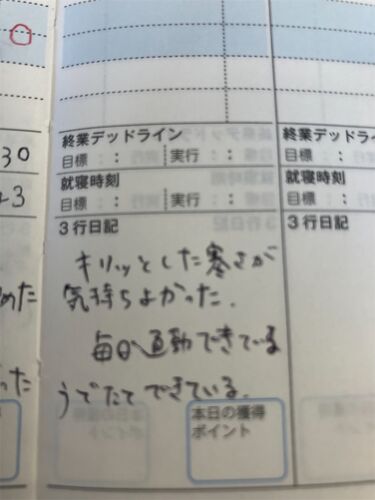 30
終業デッドライン
終業デッドライ
目標 : : 実行 : :
目標 : :
就寝時刻
就寝時刻
43
目標 : : 実行 : :
目標 : :
3行日記
3行日記
キリッとした寒さが
気持ちよかった.
めた
毎日運動できている
った
うでたてできている.
本日の獲得
ポイント